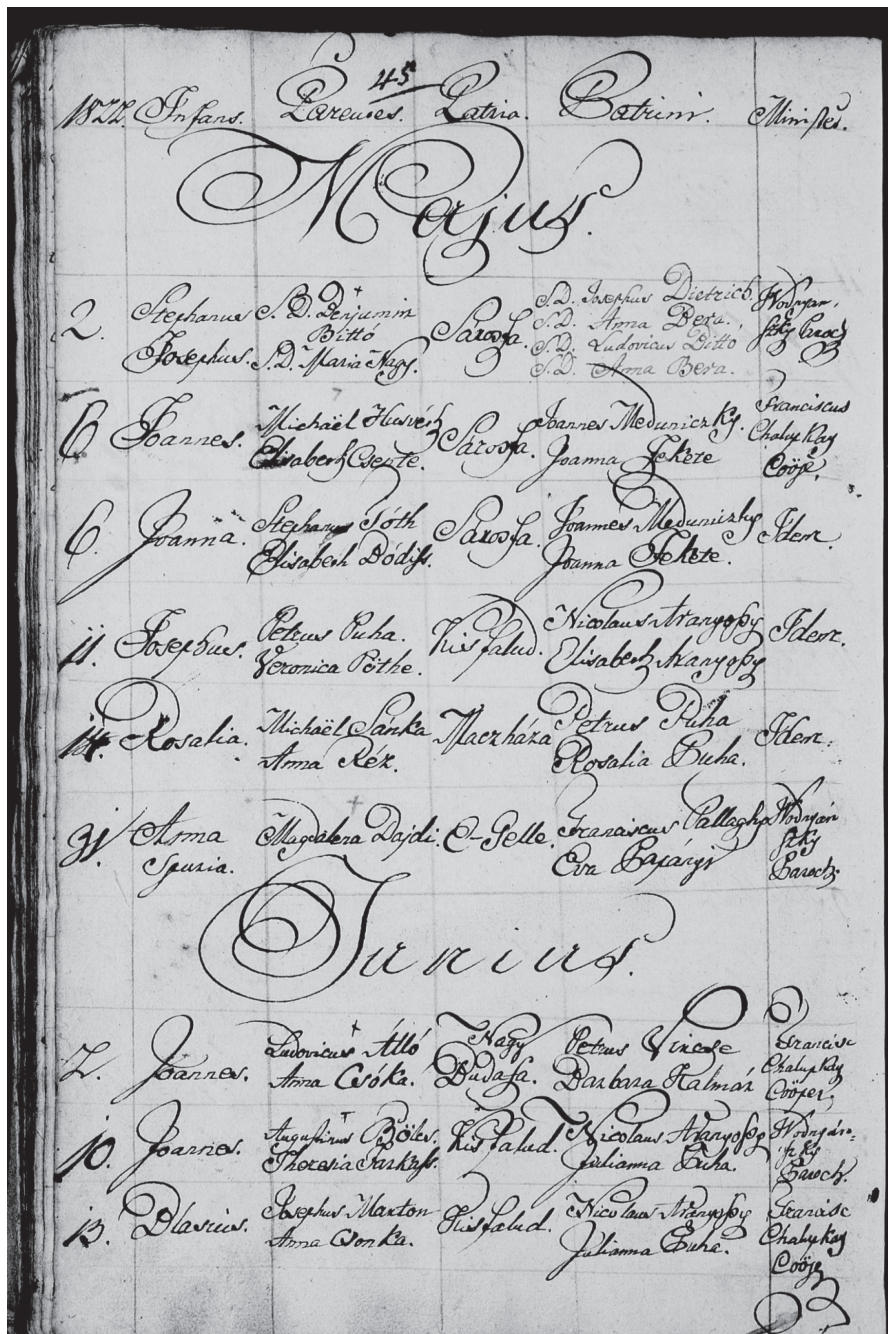 45
1822. Infans. Parentes. Patria. Patrini. Minister.
Majus.
2. Stephanus Josephus. S. D. Benjamin Bittó S. D. Maria Nagy. Sarosfa. S. D. Josephus Dietrich. S. D. Anna Bera. S. D. Ludovicus Bitto S. D. Anna Bera. Wodnyánszky Paroch
6 Joannes. Michaël Husvéth Elisabeth Csepte. Sárosfa. Joannes Meduniczky. Joanna Fekete Franciscus Chalupkay Cööpe.
6. Joanna. Stephanus Tóth Elisabeth Bódiss. Sarosfa. Joannes Meduniczky Joanna Fekete. Idem.
11. Josephus. Petrus Puha. Veronica Póthe. Kisfalud. Nicolaus Aranyossy Elisabeth Aranyossy Idem.
14. Rosalia. Michaël Sánka Anna Réz. Maczháza Petrus Puha Rosalia Puha. Idem.
31 Anna Spuria. Magdalena Dajdi. E-Gelle. Franciscus Pallaghy Eva Papányi Wodnyánszky Paroch.
Junius.
2. Joannes. Ludovicus Álló Anna Csóka. Nagy Budafa. Petrus Vincze Barbara Halmár Francisc Chalupkay Cööper.
10. Joannes. Augustinus Böles. Theresia Farkass. Kisfalud. Nicolaus Aranyossy Julianna Puha. Wodnyánszky Paroch.
13. Blasius. Josephus Marton Anna Csonka. Kisfalud. Nicolaus Aranyossy Julianna Puha. Francisc Chalupkay Cööpe